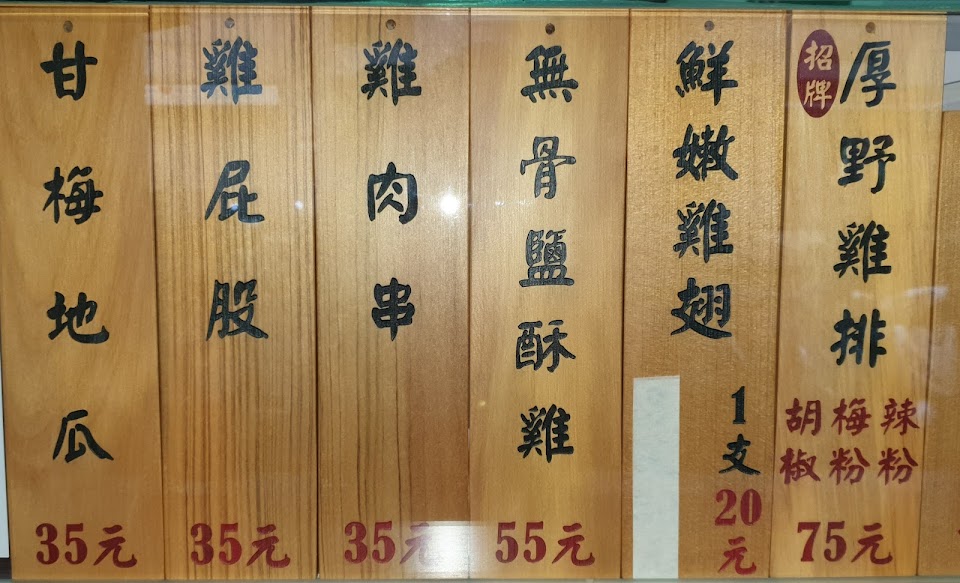 招牌
厚野雞排
胡椒
梅粉
辣粉
75元
鮮嫩雞翅
1支
20
元
無骨鹽酥雞
55元
雞肉串
35元
雞屁股
35元
甘梅地瓜
35元